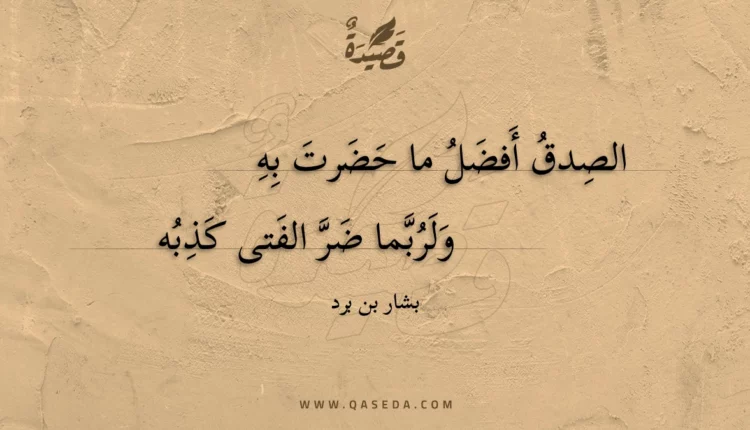 قَصِيدَةٌ
الصِدقُ أَفضَلُ ما حَضَرتَ بِهِ
وَلَرُبَّما ضَرَّ الفَتى كَذِبُه
بشار بن برد
WWW.QASEDA.COM